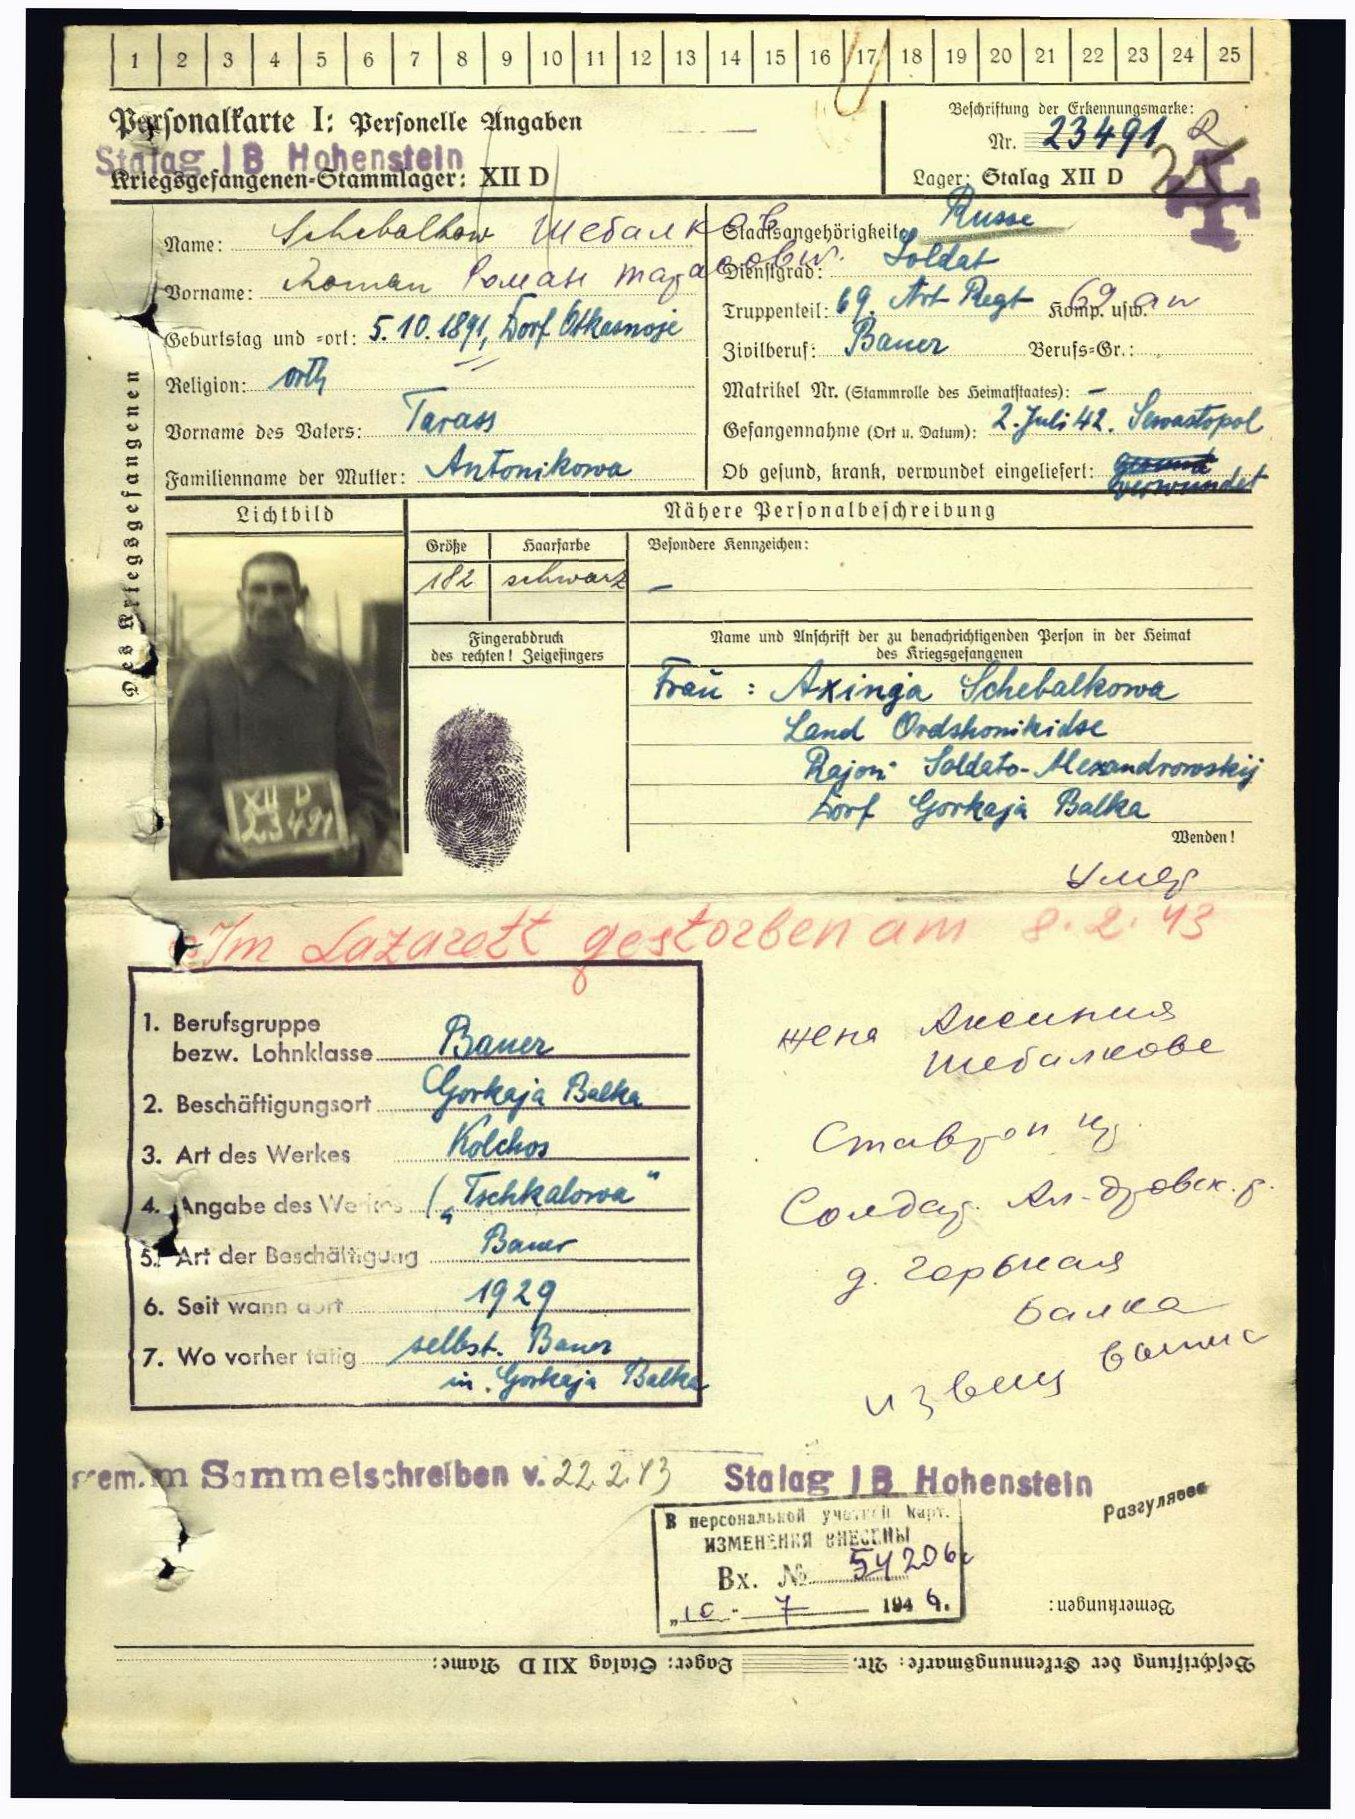 1 2 3 4 5 6 7 8 9 10 11 12 13 14 15 16 17 18 19 20 21 22 23 24 25
Personalkarte I: Personelle Angaben
Stalag IB Hohenstein
Kriegsgefangenen-Stammlager: XII D
Beschriftung der Erkennungsmarke:
Nr. 23491
Lager: Stalag XII D
25
Des Kriegsgefangenen
Name: Schebalkow Шебалков
Vorname: Roman Роман Тарасович
Geburtstag und -ort: 5.10.1891, Dorf Otkasnoje
Religion: orth
Vorname des Vaters: Tarass
Familienname der Mutter: Antonikowa
Staatsangehörigkeit: Russe
Dienstgrad: Soldat
Truppenteil: 69. Art Regt Komp. usw. 69 ап
Zivilberuf: Bauer Berufs-Gr.:
Matrikel Nr. (Stammrolle des Heimatstaates): –
Gefangennahme (Ort u. Datum): 2. Juli 42. Sewastopol
Ob gesund, krank, verwundet eingeliefert: gesund
verwundet
Lichtbild
Nähere Personalbeschreibung
Größe Haarfarbe Besondere Kennzeichen:
182 schwarz –
Fingerabdruck
des rechten! Zeigefingers
Name und Anschrift der zu benachrichtigenden Person in der Heimat
des Kriegsgefangenen
XII D
23491
Frau: Axinja Schebalkowa
Land Ordshonikidse
Rajon Soldato-Alexandrowskij
Dorf Gorkaja Balka
Wenden!
Умер
Im Lazarett gestorben am 8.2.43
1. Berufsgruppe
bezw. Lohnklasse Bauer
2. Beschäftigungsort Gorkaja Balka
3. Art des Werkes Kolchos
4. Angabe des Werkes „Tschkalowa“
5. Art der Beschäftigung Bauer
6. Seit wann dort 1929
7. Wo vorher tätig selbst. Bauer
in Gorkaja Balka
жена Аксиния
Шебалкове
Ставроп
Солдат. Ал-дровск. р.
д. Горькая
Балка
извещ
gem. m Sammelschreiben v. 22.2.43
Stalag IB Hohenstein
Разгуляева
В персональной учетной карт.
ИЗМЕНЕНИЯ ВНЕСЕНЫ
Вх. № 54206
„10 - 7 1946.
Bemerkungen:
Beschriftung der Erkennungsmarke: Nr. Lager: Stalag XII D Name: